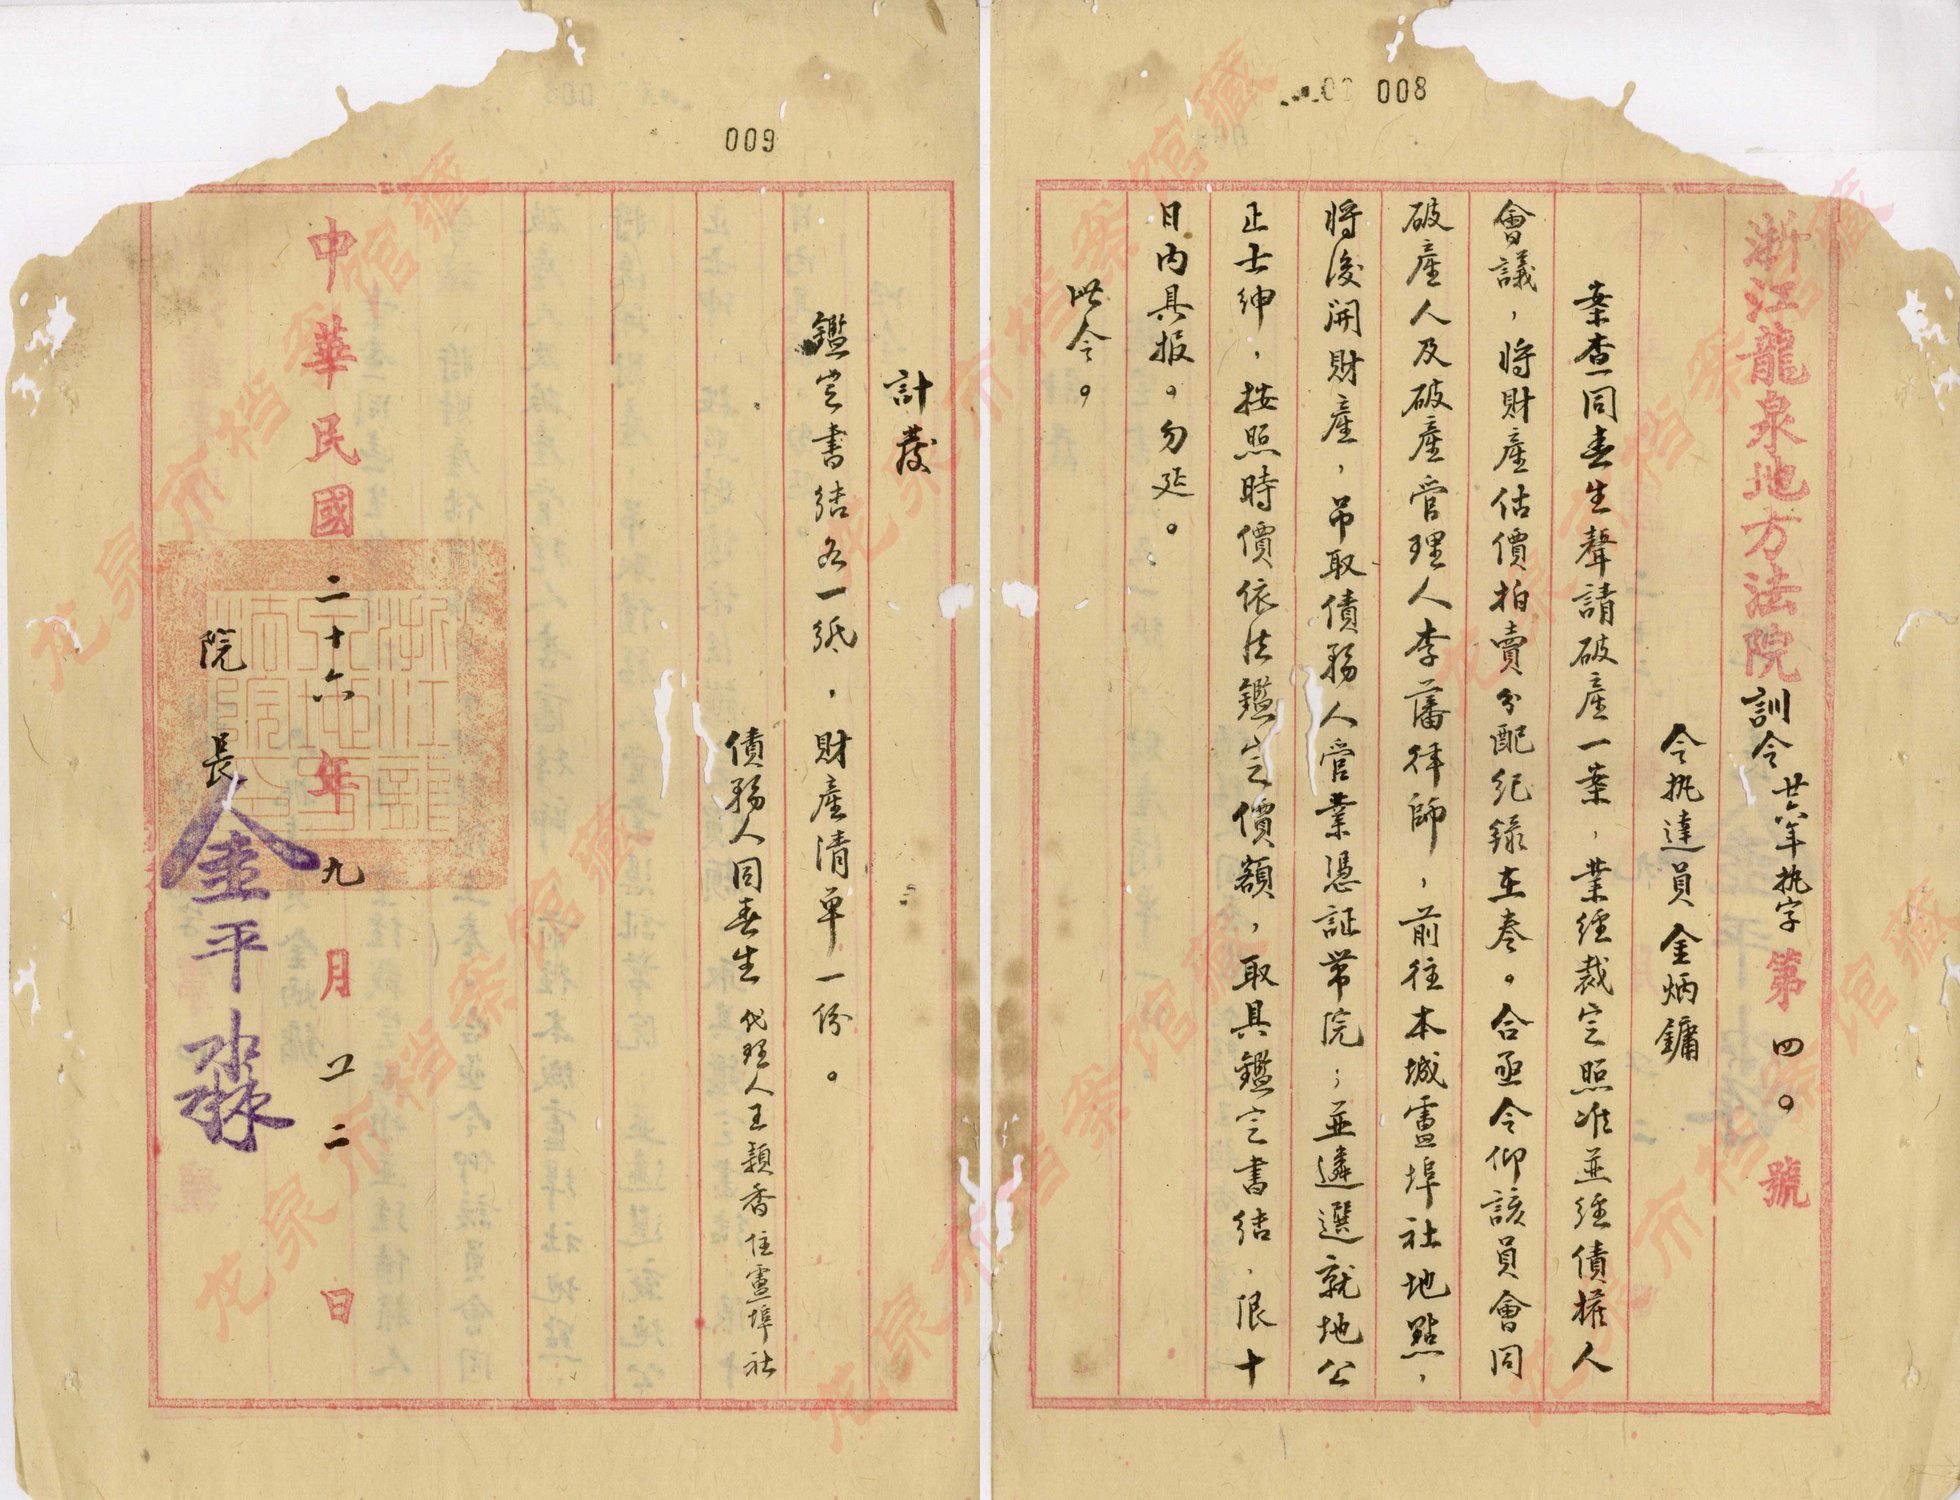 008
浙江龍泉地方法院訓令 廿六年执字第四〇號
令执達員金炳鏞
案查同春生聲請破産一案，業經裁定照准並經債權人
會議，將財産估價拍賣分配纪錄在卷。合亟令仰該員會同
破産人及破産管理人李藩律師，前往本城宫埠社地點，
將後開財産，吊取債務人管業憑証带院；並遴選就地公
正士紳，按照時價依法鑑定價額，取具鑑定書结，限十
日内具报。勿延。
此令。
009
計發
鑑定書结各一紙，財産清单一份。
債務人同春生 代理人王穎香 住宫埠社
中華民國二十六年九月廿二日
院長金平淼
浙江龍泉地方法院印
龙泉市档案馆藏